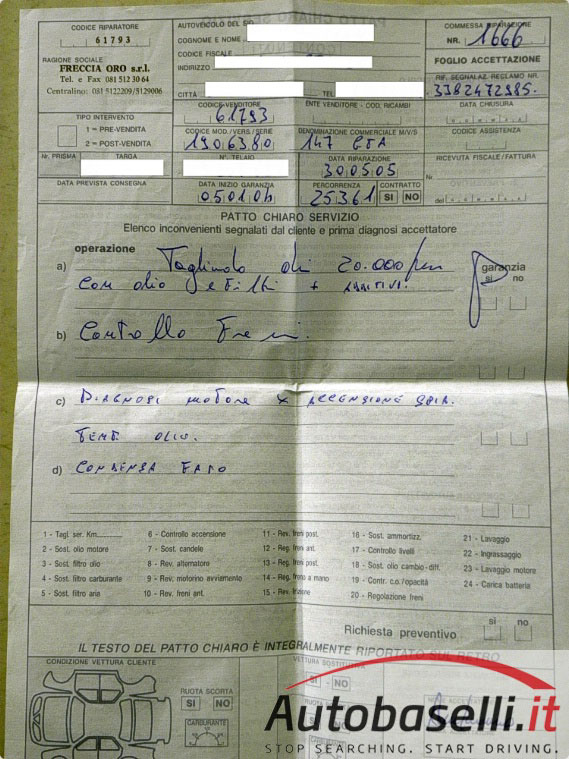 CODICE RIPARATORE
61793
AUTOVEICOLO DEL SIG.
COGNOME E NOME
CODICE FISCALE
INDIRIZZO
CITTÀ TEL
COMMESSA RIPARAZIONE
NR. 1666
FOGLIO ACCETTAZIONE
RIF. SEGNALAZ. RECLAMO NR.
3382472985.
RAGIONE SOCIALE
FRECCIA ORO s.r.l.
Tel. e Fax 081 512 30 64
Centralino: 081 5122209/5129006
CODICE VENDITORE
61793
ENTE VENDITORE - COD. RICAMBI
DATA CHIUSURA
TIPO INTERVENTO
1 = PRE-VENDITA
2 = POST-VENDITA
CODICE MOD./VERS./SERIE
1906380
DENOMINAZIONE COMMERCIALE M/V/S
147 GTA
CODICE ASSISTENZA
Nr. PRISMA TARGA
N° TELAIO
DATA RIPARAZIONE
300505
RICEVUTA FISCALE/FATTURA
Nr.
del
DATA PREVISTA CONSEGNA
DATA INIZIO GARANZIA
050104
PERCORRENZA
25361
CONTRATTO
SI NO
PATTO CHIARO SERVIZIO
Elenco inconvenienti segnalati dal cliente e prima diagnosi accettatore
operazione
garanzia
si no
a) Tagliando di 20.000/km
con olio e filtri + additivi.
b) Controllo Freni.
c) DIAGNOSI MOTORE X ACCENSIONE SPIA.
TEMP. OLIO.
d) CONDENSA FARO
1 - Tagl. ser. Km
2 - Sost. olio motore
3 - Sost. filtro olio
4 - Sost. filtro carburante
5 - Sost. filtro aria
6 - Controllo accensione
7 - Sost. candele
8 - Rev. alternatore
9 - Rev. motorino avviamento
10 - Rev. freni ant.
11 - Rev. freni post.
12 - Reg. freni ant.
13 - Reg. freni post.
14 - Reg. freno a mano
15 - Rev. frizione
16 - Sost. ammortizz.
17 - Controllo livelli
18 - Sost. olio cambio-diff.
19 - Contr. c.o./opacità
20 - Regolazione freni
21 - Lavaggio
22 - Ingrassaggio
23 - Lavaggio motore
24 - Carica batteria
Richiesta preventivo
si no
IL TESTO DEL PATTO CHIARO È INTEGRALMENTE RIPORTATO SUL RETRO
CONDIZIONE VETTURA CLIENTE
RUOTA SCORTA
SI NO
CARBURANTE
VETTURA SOSTITUTIVA
SI - NO
Autobaselli.it
STOP SEARCHING. START DRIVING.